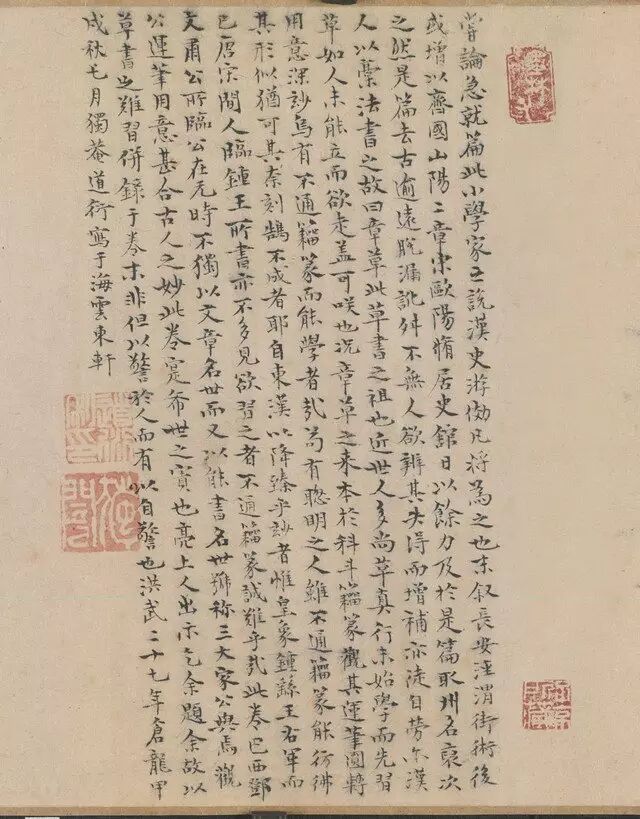 嘗論急就篇此小學家之說漢史游倣凡將為之也末叙長安涇渭街術後
或增以齊國山陽二章宋歐陽脩居史舘日以餘力及於是篇取州名裒次
之然是篇去古逾遠脫漏訛舛不無人欲辨其失得而增補亦徒自勞尓漢
人以稾法書之故曰章草此草書之祖也近世人多尚草真行未始學而先習
草如人未能立而欲走盖可咲也況章草之來本於科斗籀篆觀其運筆圓轉
用意深玅烏有不通籀篆而能學者哉苟有聡明之人雖不通籀篆能彷彿
其形似猶可其奈刻鵠不成者耶自東漢以降臻乎玅者惟皇象鍾繇王右軍而
已唐宋間人臨鍾王所書亦不多見欲習之者不通籀篆誠難乎哉此卷巴西鄧
文肅公所臨公在元時不獨以文章名世而又以能書名世號称三大家公與焉觀
公運筆用意甚合古人之妙此卷寔希世之寳也亮上人出示乞余題余故以
草書之難習併錄于卷末非但以警於人而有以自警也洪武二十七年倉龍甲
戌秋七月獨菴道衍寫于海雲東軒